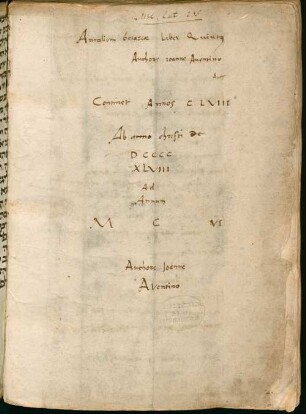 Annalium boiariae Liber Quintus
Authore Ioanne Aventino
Continet Annos CLVIII
Ab anno christi De
DCCCC
XLVIII
Ad
Annum
M C VI
Authore Ioanne
Aventino